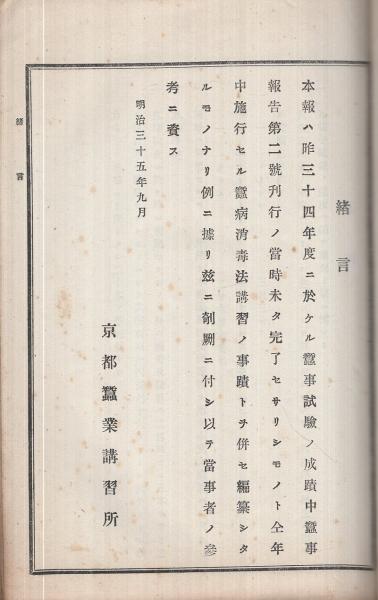 緖言
本報ハ昨三十四年度ニ於ケル蠶事試驗ノ成蹟中蠶事
報告第二號刊行ノ當時未タ完了セサリシモノト仝年
中施行セル蠶病消毒法講習ノ事蹟トヲ併セ編纂シタ
ルモノナリ例ニ據リ玆ニ剞劂ニ付シ以テ當事者ノ參
考ニ資ス
明治三十五年九月
京都蠶業講習所
緖言